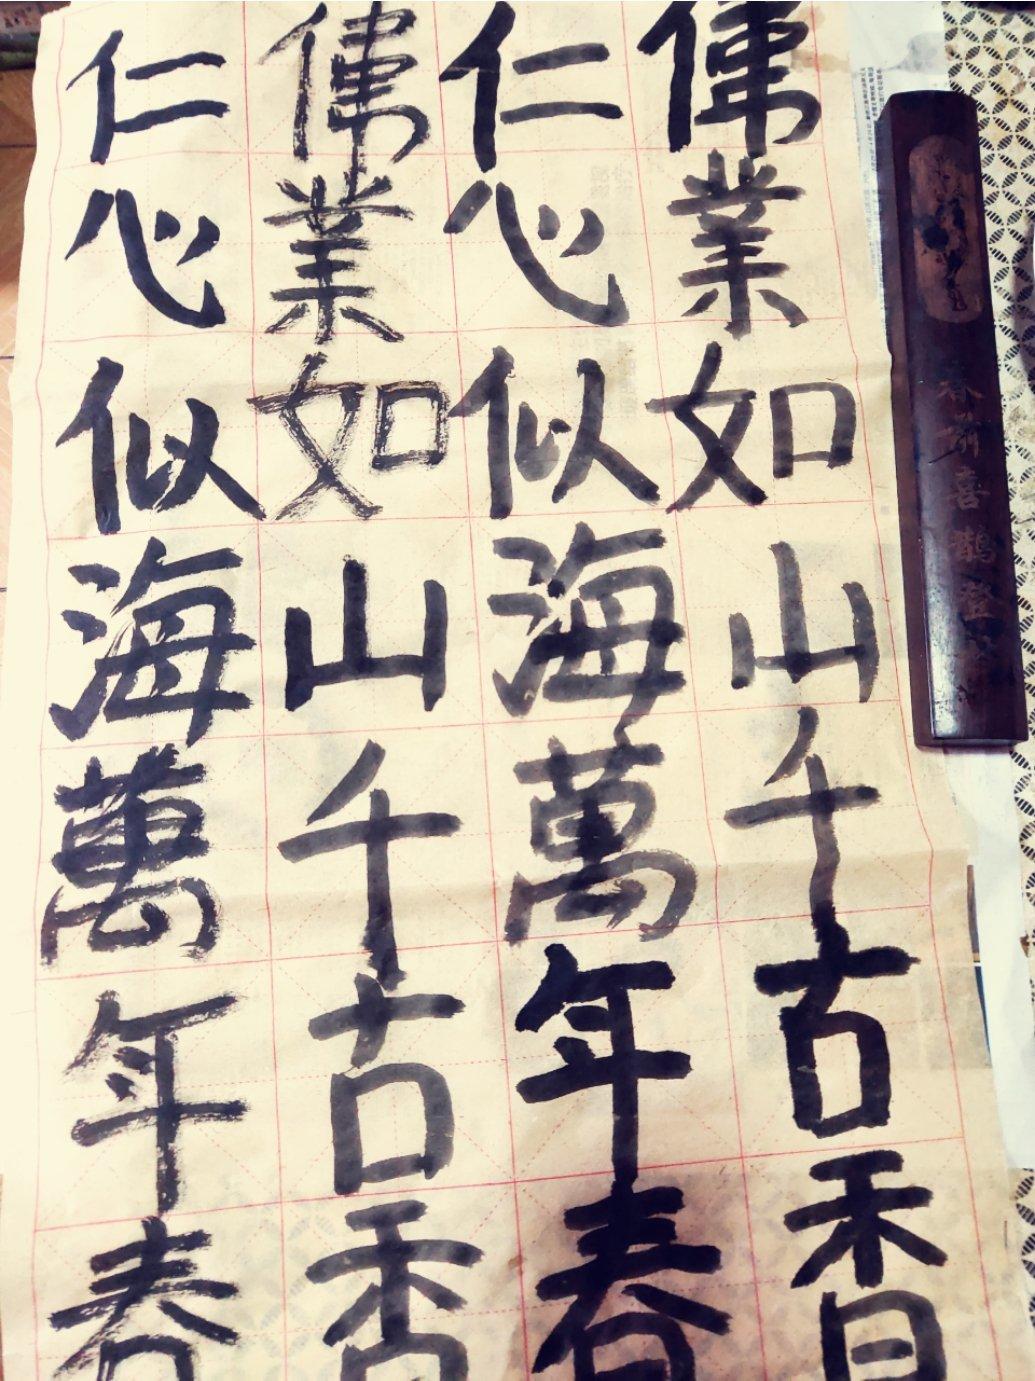 偉業如山千古香
仁心似海萬年春
偉業如山千古香
仁心似海萬年春
喜鵲登